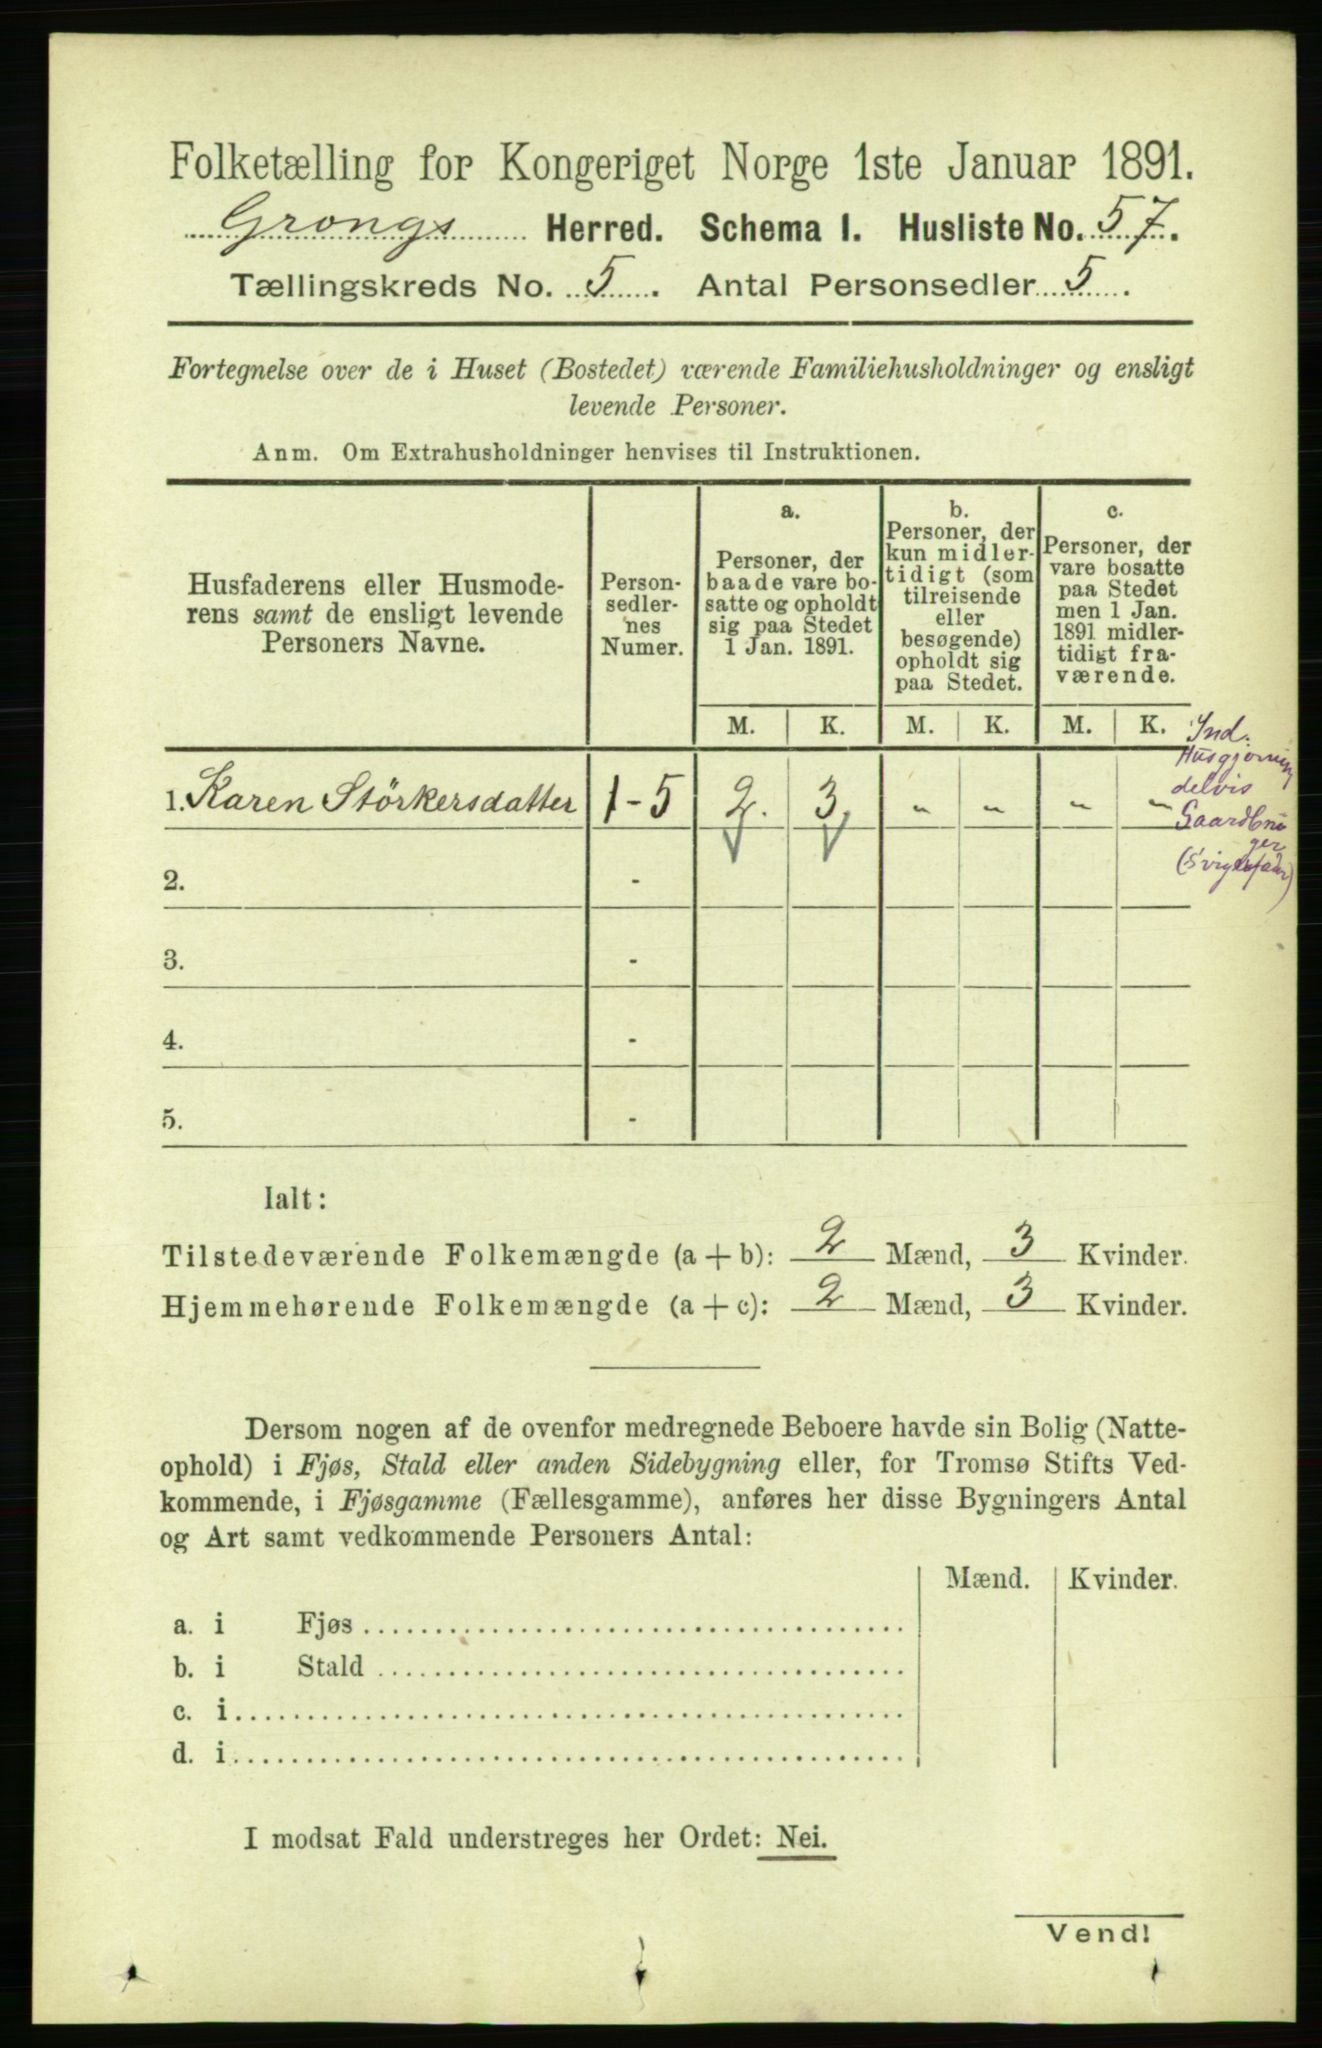 Folketælling for Kongeriget Norge 1ste Januar 1891.
Grongs Herred. Schema I. Husliste No. 57.
Tællingskreds No. 5. Antal Personsedler 5.
Fortegnelse over de i Huset (Bostedet) værende Familiehusholdninger og ensligt
levende Personer.
Anm. Om Extrahusholdninger henvises til Instruktionen.
Husfaderens eller Husmode-
rens samt de ensligt levende
Personers Navne.
Person-
sedler-
nes
Numer.
a.
Personer, der
baade vare bo-
satte og opholdt
sig paa Stedet
1 Jan. 1891.
b.
Personer, der
kun midler-
tidigt (som
tilreisende
eller
besøgende)
opholdt sig
paa Stedet.
c.
Personer, der
vare bosatte
paa Stedet
men 1 Jan.
1891 midler-
tidigt fra-
værende.
M. K. M. K. M. K.
Ind.
Husgjerning
delvis
Gaardbru
ger
1. Karen Störkersdatter 1-5 2. 3. " " " "
2. -
3. -
4. -
5. -
Ialt:
Tilstedeværende Folkemængde (a + b): 2 Mænd, 3 Kvinder.
Hjemmehørende Folkemængde (a + c): 2 Mænd, 3 Kvinder.
Dersom nogen af de ovenfor medregnede Beboere havde sin Bolig (Natte-
ophold) i Fjøs, Stald eller anden Sidebygning eller, for Tromsø Stifts Ved-
kommende, i Fjøsgamme (Fællesgamme), anføres her disse Bygningers Antal
og Art samt vedkommende Personers Antal:
Mænd. Kvinder.
a. i Fjøs
b. i Stald
c. i
d. i
I modsat Fald understreges her Ordet: Nei.
Vend!